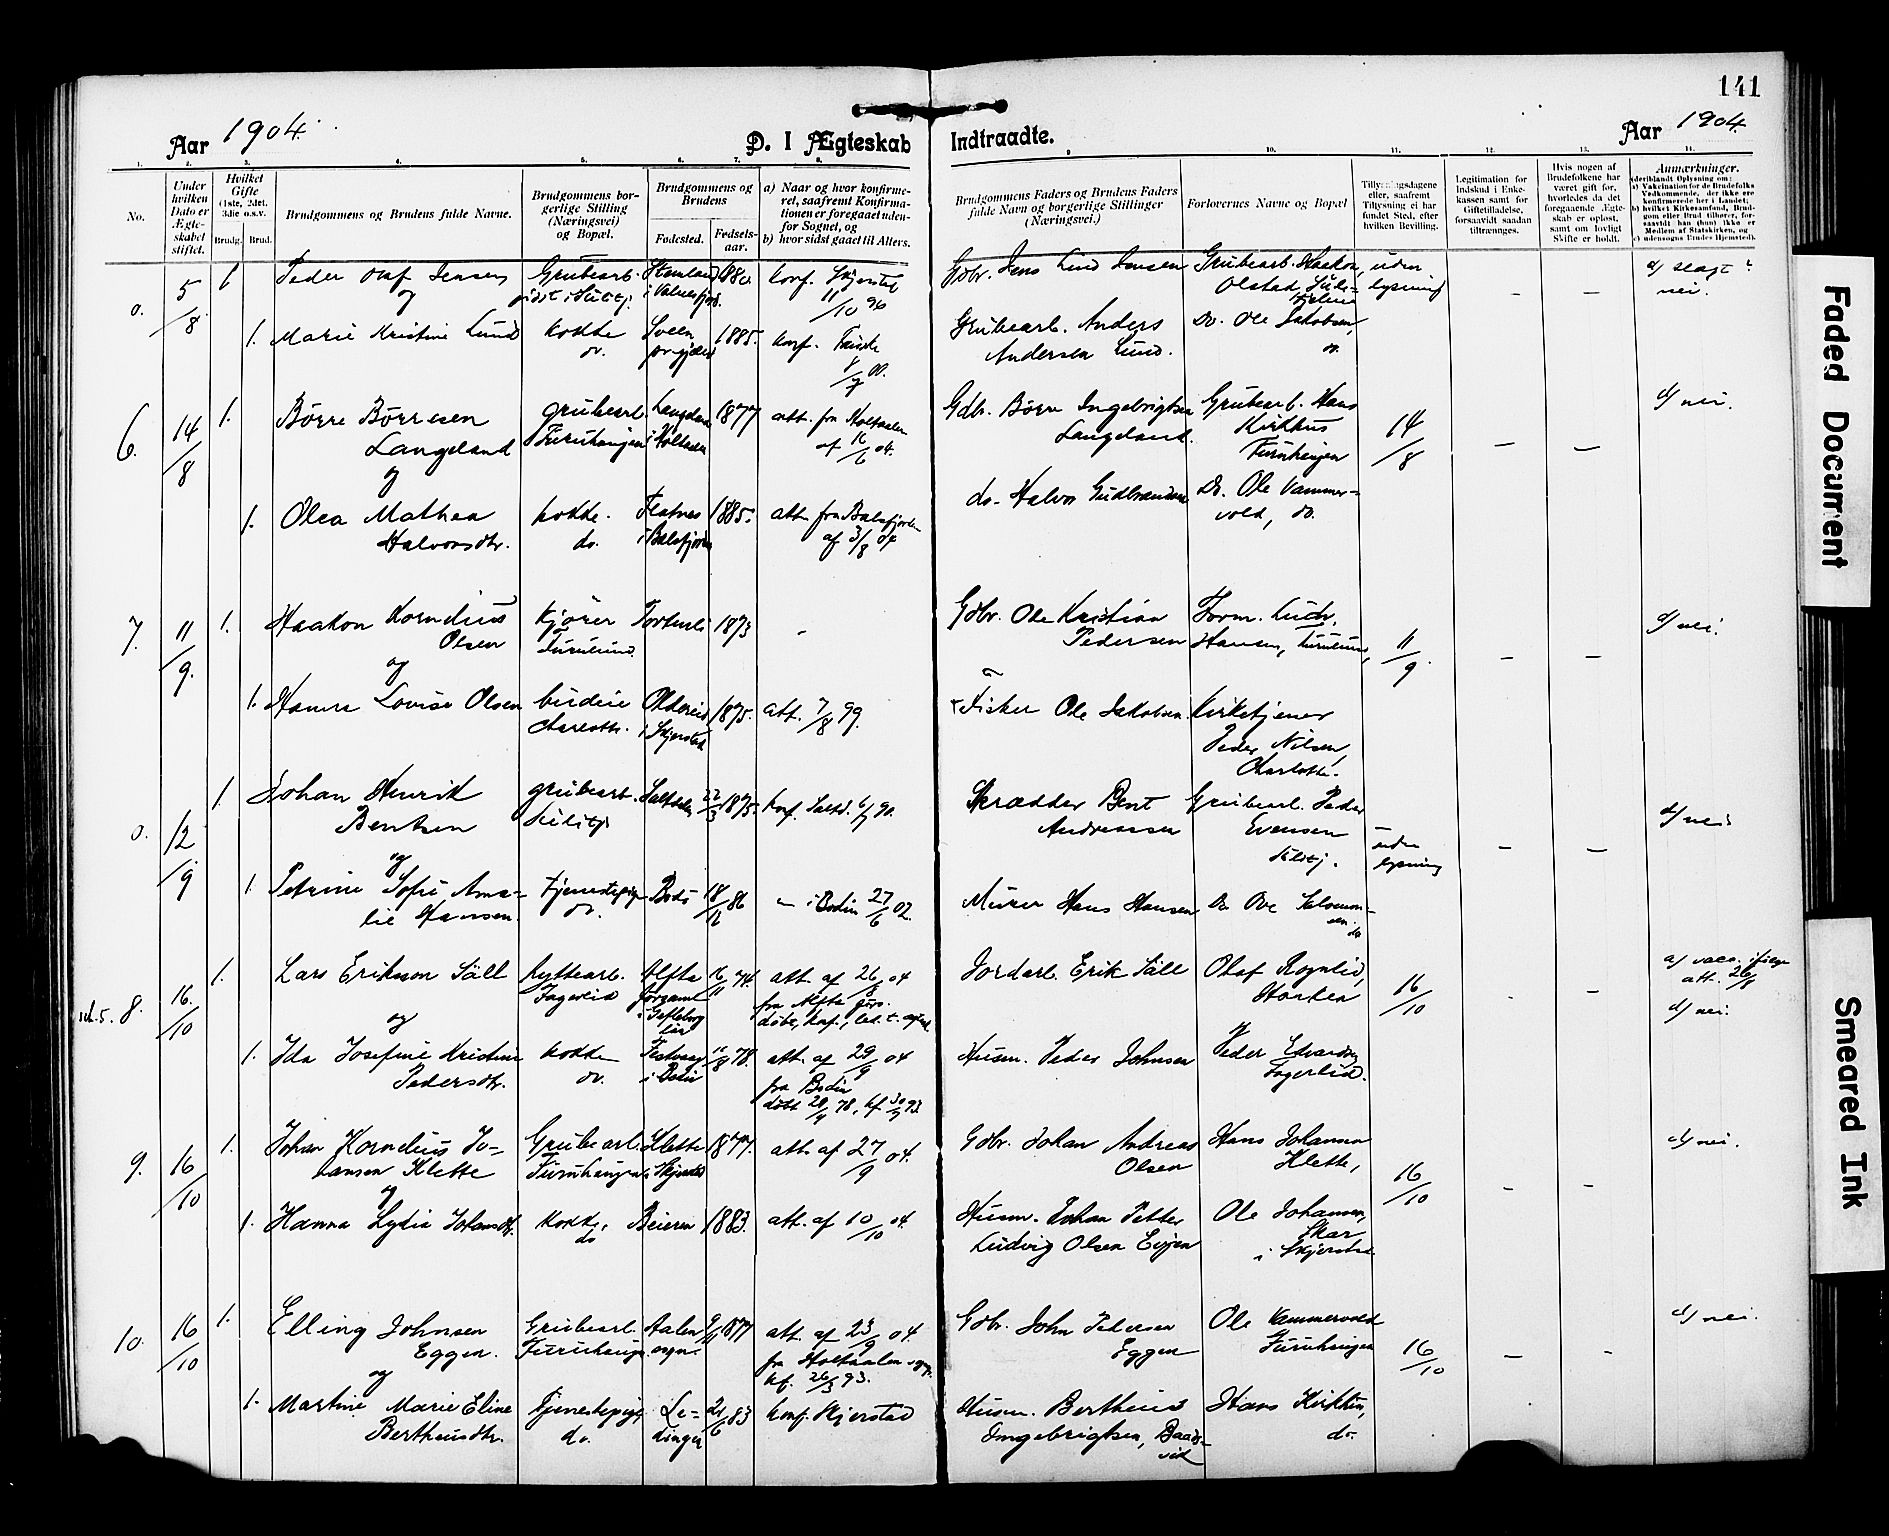 141
Aar 1904.
D. I Ægteskab Indtraadte.
Aar 1904.
1. 2. 3. 4. 5. 6. 7. 8. 9. 10. 11. 12. 13. 14.
No.
Under hvilken Dato er Ægteskabet stiftet.
Hvilket Gifte (1ste, 2det, 3die o.s.v.
Brudg. Brud.
Brudgommens og Brudens fulde Navne.
Brudgommens borgerlige Stilling (Næringsvei) og Bopæl.
Brudgommens og Brudens
Fødested. Fødselsaar.
a) Naar og hvor konfirmeret, saafremt Konfirmationen er foregaaet udenfor Sognet, og
b) hvor sidst gaaet til Alters.
Brudgommens Faders og Brudens Faders fulde Navn og borgerlige Stillinger (Næringsvei.)
Forlovernes Navne og Bopæl
Tillysningsdagene eller, saafremt Tillysning ei har fundet Sted, efter hvilken Bevilling.
Legitimation for Indskud i Enkekassen samt for Giftetilladelse, forsaavidt saadan tiltrænges.
Hvis nogen af Brudefolkene har været gift før, hvorledes da det foregaaende Ægteskab er opløst, samt om lovligt Skifte er holdt.
Anmærkninger.
(deriblandt Oplysning om:
a) Vakcination for de Brudefolks Vedkommende, der ikke ere konfirmerede her i Landet;
b) hvilket Kirkesamfund, Brudgom eller Brud tilhører, forsaavidt han (hun) ikke er Medlem af Statskirken, og
c) udensogns Brudes Hjemsted).
0. 5/8 1 Peder Olaf Jensen Grubearb. 1880. konf. Skjerstad 11/10 96 Gdbr. Jens Lind Jensen Grubearb. Haakon Olstad, uden lysning - - d/ nei.
og
1. Marie Kristine Lund kokke do. 1885. konf. Grubearb. Anders Andersen Lund. Do. Ole Jakobsen, do.
6. 14/8 1. Børre Børresen Langeland grubearb. Furuhaugen 1877 att. fra Holtaalen af 16/6 04. Gdb. Børre Ingebrigtsen Langeland. Grubearb. Hans Kirkhus Furuhaugen 14/8 - - d/ nei.
og
1. Olea Mathea Halvorsdtr. kokke. do. i Balsfjorden 1885. att. fra Balsfjorden af 3/8 04 do. Halvor Gudbrandsen Do. Ole Vammervold, do.
7. 11/9. 1. Haakon Kornelius Olsen kjører Furulund. 1873 - Gdbr. Ole Kristian Pedersen Form. Ludv. Hansen, Furulund, 11/9. - - d/ nei.
og
1. Hanna Lovise Olsen budeie Charlotta. i Skjerstad 1875. att. 7/8 99. Fisker Ole Jakobsen Kirketjener Peder Nilsen, Charlotta.
0. 12/9 1. Johan Henrik Bentsen grubearb. Sulitj. Saltdalen 22/3 1875. konf. Saltd. 6/7 90. Skrædder Bent Andreassen Grubearb. Peder Evensen Sulitj. uden lysning - - d/ nei
og
1. Petrine Sofie Amalie Hansen Tjenestepige do. Bodø 18/12 86 i Bodin 27/6 02. Murer Hans Hansen Do Ove Salomonsen do
8. 16./10 1. Lars Erikson Säll hyttearb. Fagerlid Alfta 16/11 74. att. af 26/8 04 fra Alfta døbt, konf., Jordarb. Erik Säll Olaf Rognlid, 16/10 - - a/ vacc. ifølge att. 26/8 d/ nei.
og
1. Ida Josefine Kristine Pedersdtr. kokke do. 78. att. af 29/9 04 fra Bodin Husm. Peder Johnsen Peder Edvardsen Fagerlid.
9. 16/10 1. Johan Kornelius Johansen Klette Grubearb. Furuhaugen Klette i Skjerstad 1877. att. af 27/9 04. Gdbr. Johan Andreas Olsen Hans Johansen Klette, 16/10 - - d/ nei.
og
1. Hanna Lydia Johansdtr. kokke. do Beieren 1883. att. af 10/10 04. Husm. Johan Petter Ludvig Olsen Evjen Ole Johansen, Skar i Skjerstad
10. 16/10 1. Elling Johnsen Eggen. Grubearb. Furuhaugen Aalen 1877 att. af 23/9 04. fra Holtaalen kf. 26/3 93. Gdbr. John Pedersen Eggen Ole Vammervold Furuhaugen 16/10 - - d/ nei.
og
1. Martine Marie Eline Bertheusdtr. Tjenestepige do. Ledingen 21/6 83 konf. Skjerstad Husm. Bertheus Ingebrigtsen, Hans Kirkhus, do.
Faded Document
Smeared Ink